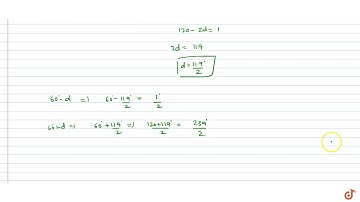 120 - 2d = 1
2d = 119
d = 119°/2
60° - d =) 60° - 119°/2 = 1°/2
60+d =) 60° + 119°/2 =) 120+119°/2 = 239°/2